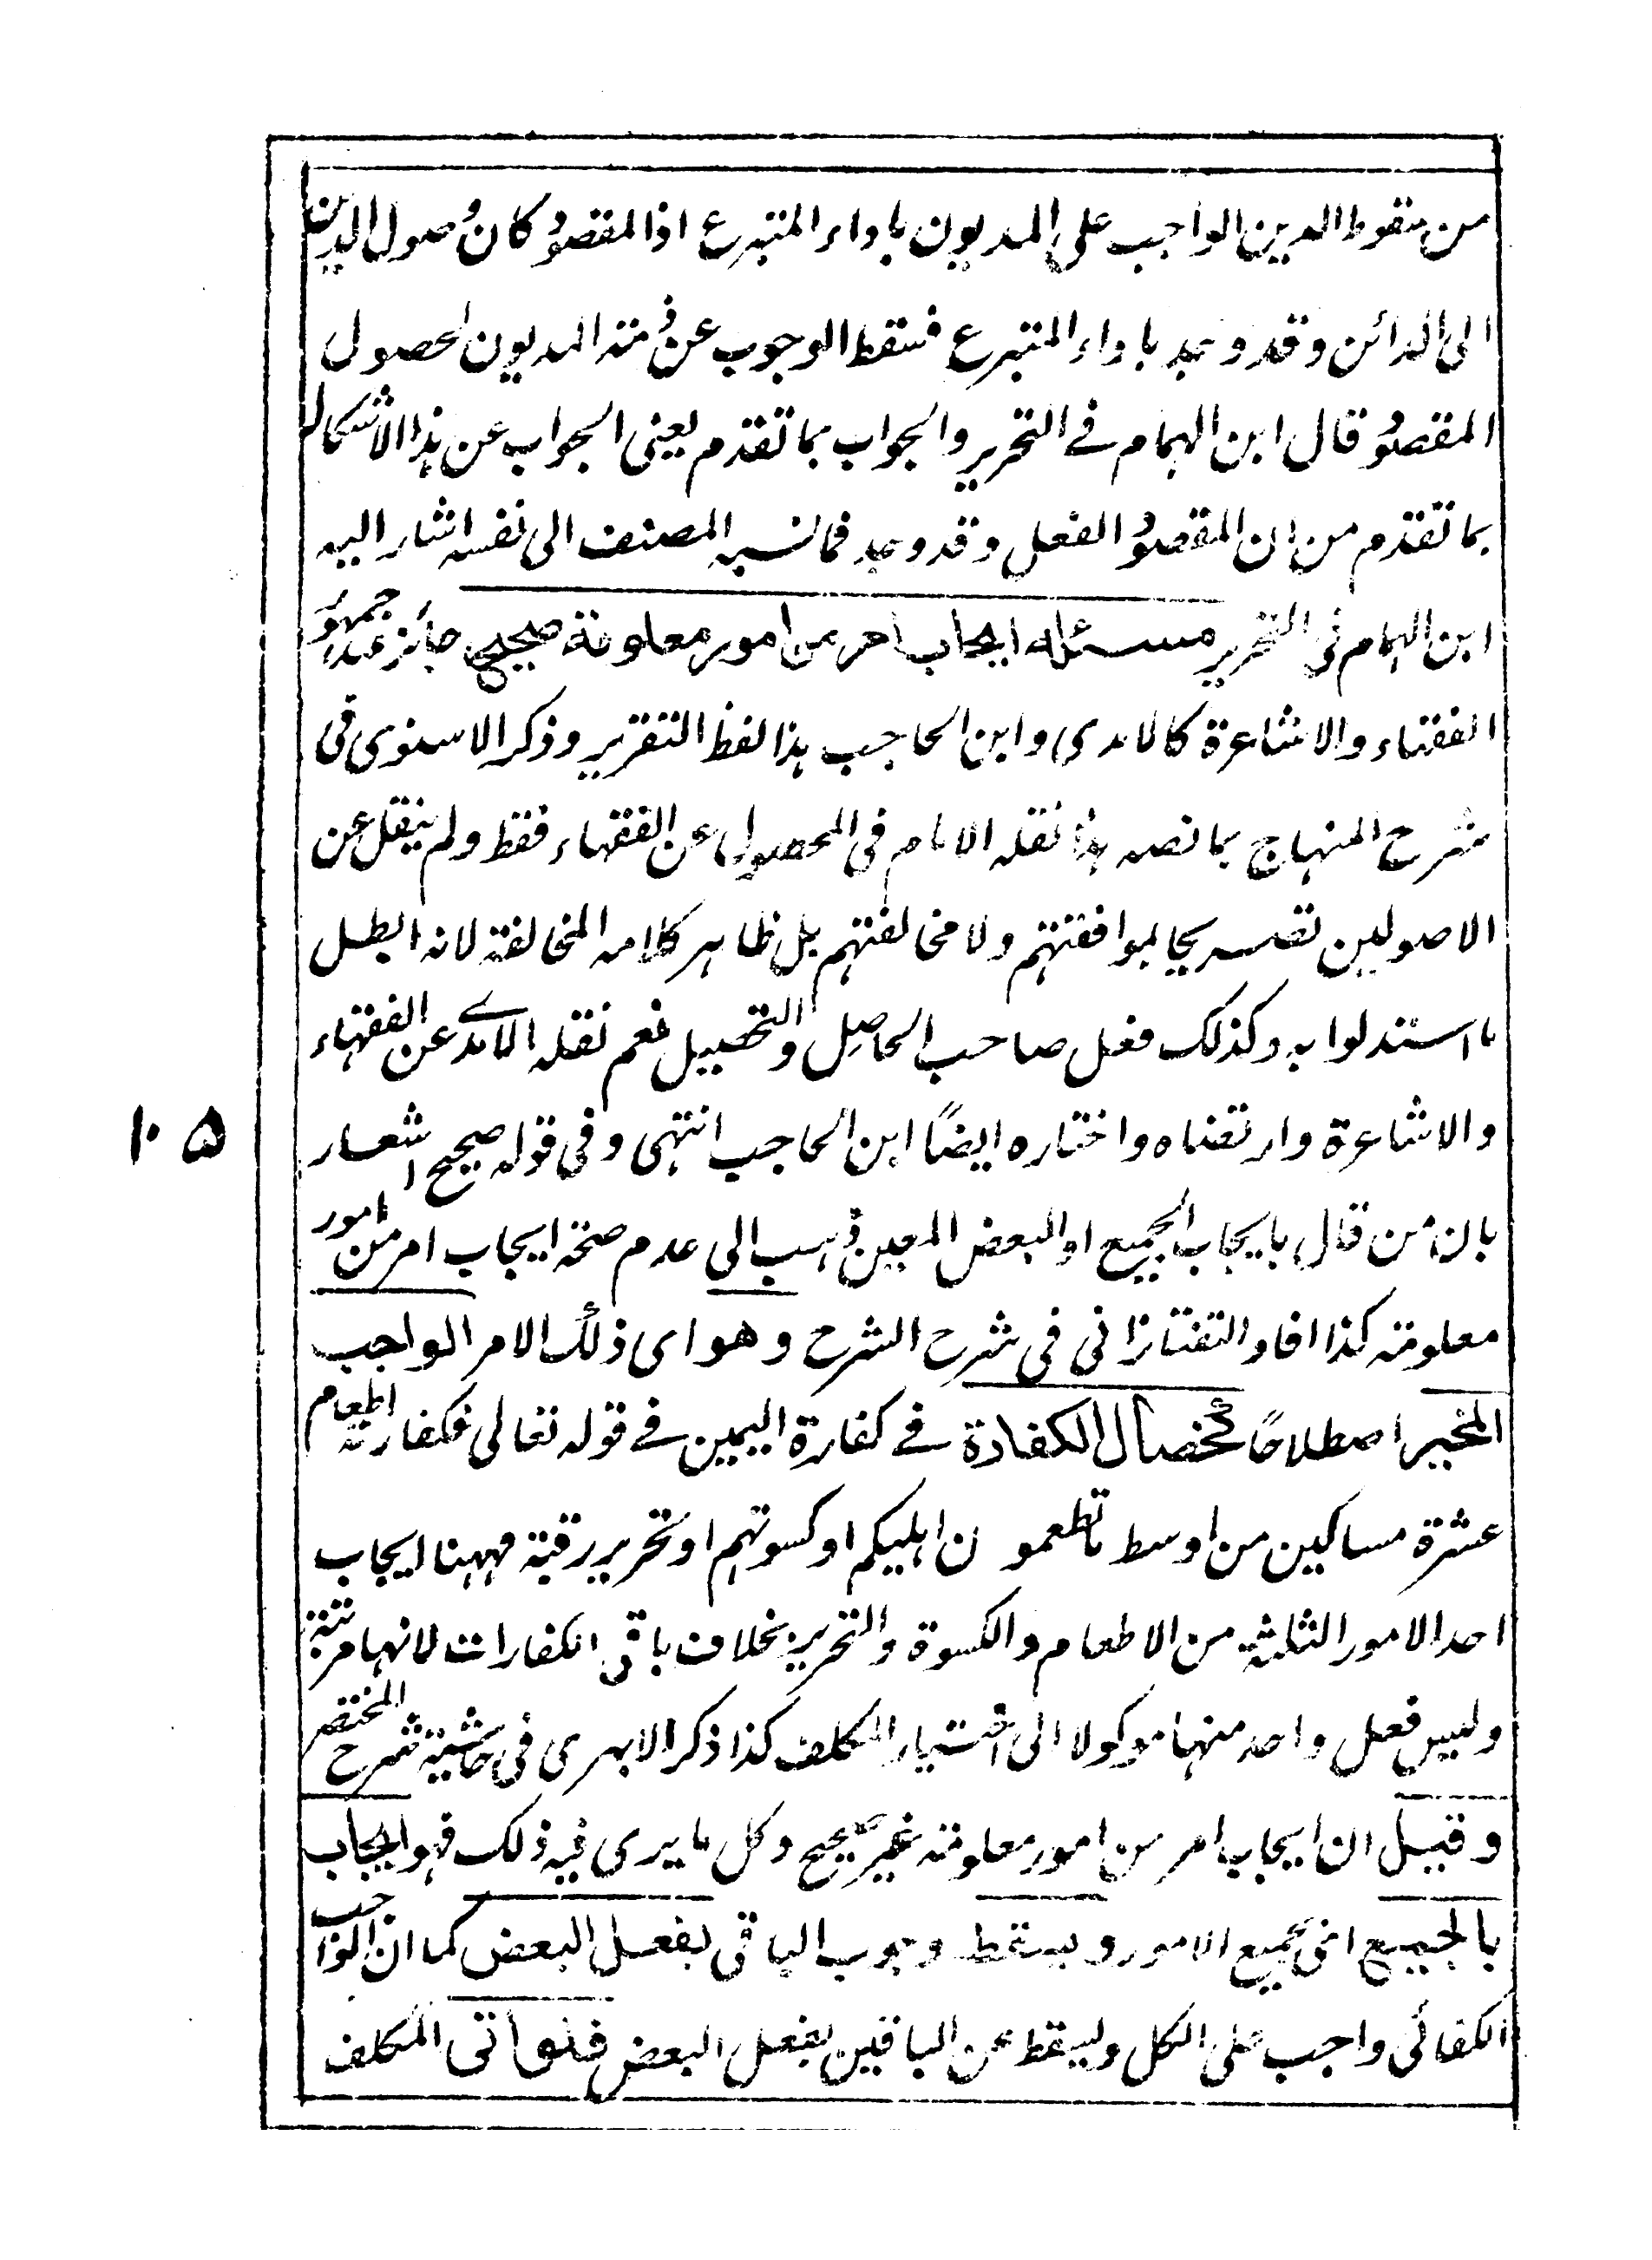 من سقوط الدين الواجب على المديون باداء المتبرع اذ المقصود كان وصول الدين
الى الدائن وقد وجد باداء المتبرع فسقط الوجوب عن ذمة المديون لحصول
المقصود قال ابن الهمام فے التحرير والجواب بما تقدم يعنى الجواب عن هذا الاشكال
بما تقدم من ان المقصود الفعل وقد وجد فما نسبه المصنف الى نفسه اشار اليه
ابن الهمام فى التحرير مسئله ايجاب امر من امور معلومة صحيح جائز عند جمهور
الفقهاء والاشاعرة كالامدى وابن الحاجب هذا لفظ التقرير وذكر الاسنوى فى
شرح المنهاج بما نصه هذا نقله الامام فى المحصول عن الفقهاء فقط ولم ينقل عن
الاصوليين تصريحا بموافقتهم ولا مخالفتهم بل ظاهر كلامه المخالفة لانه ابطل
ما استدلوا به وكذلك فعل صاحب الحاصل والتحصيل نعم نقله الامدے عن الفقهاء
والاشاعرة وارتضاه واختاره ايضًا ابن الحاجب انتهى وفى قوله صحيح اشعار
بان من قال بايجاب الجميع او البعض المعين ذهب الى عدم صحة ايجاب امر من امور
معلومة كذا افاد التفتازانى فى شرح الشرح وهو اى ذلك الامر الواجب
المخير اصطلاحًا كخصال الكفارة فے كفارة اليمين فے قوله تعالى فكفارته اطعام
عشرة مساكين من اوسط ما تطعمون اهليكم او كسوتهم او تحرير رقبة فههنا ايجاب
احد الامور الثلثة من الاطعام والكسوة والتحرير بخلاف باقى الكفارات لانها مرتبة
وليس فعل واحد منها موكولا الى اختيار المكلف كذا ذكر الابهرى فى حاشية شرح المختصر
وقيل ان ايجاب امر من امور معلومة غير صحيح وكل ما يرى فيه ذلك فهو ايجاب
بالجميع اى بجميع الامور ويسقط وجوب الباقى بفعل البعض كما ان الواجب
الكفائى واجب على الكل ويسقط عن الباقين بفعل البعض فلو اتى المكلف
۱۰۵